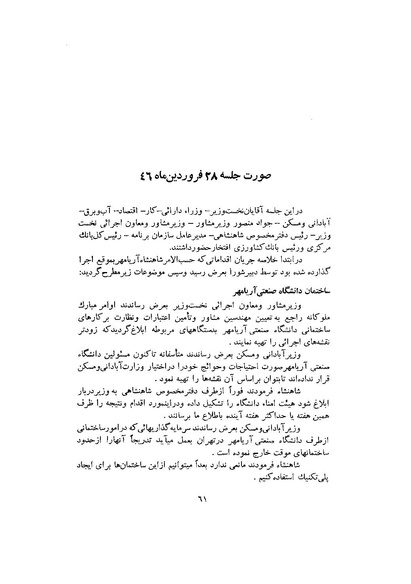 صورت جلسه ۲۸ فروردین‌ماه ۴۶
دراین جلسه آقایان‌نخست‌وزیر– وزراء دارائی–کار– اقتصاد– آب‌وبرق–
آبادانی ومسکن – جواد منصور وزیرمشاور – وزیرمشاور ومعاون اجرائی نخست
وزیر– رئیس دفترمخصوص شاهنشاهی– مدیرعامل سازمان برنامه – رئیس‌کل‌بانك
مرکزی ورئیس بانك‌کشاورزی افتخارحضورداشتند.
درابتدا خلاصه جریان اقداماتی‌که حسب‌الامرشاهنشاه‌آریامهربموقع اجرا
گذارده شده بود توسط دبیرشورا بعرض رسید وسپس موضوعات زیرمطرح‌گردید:
ساختمان دانشگاه صنعتی‌آریامهر
وزیرمشاور ومعاون اجرائی نخست‌وزیر بعرض رساندند اوامر مبارك
ملوکانه راجع به‌تعیین مهندسین مشاور وتأمین اعتبارات ونظارت برکارهای
ساختمانی دانشگاه صنعتی آریامهر بدستگاههای مربوطه ابلاغ‌گردیدکه زودتر
نقشه‌های اجرائی را تهیه نمایند .
وزیرآبادانی ومسکن بعرض رساندند متأسفانه تاکنون مسئولین دانشگاه
صنعتی آریامهرصورت احتیاجات وحوائج خودرا دراختیار وزارت‌آبادانی‌ومسکن
قرار نداده‌اند تابتوان براساس آن نقشه‌ها را تهیه نمود .
شاهنشاه فرمودند فوراً ازطرف دفترمخصوص شاهنشاهی به‌وزیردربار
ابلاغ شود هیئت امناء دانشگاه را تشکیل داده ودراینمورد اقدام ونتیجه را ظرف
همین هفته یا حداکثر هفته آینده باطلاع ما برسانند .
وزیرآبادانی‌ومسکن بعرض رساندند سرمایه‌گذاریهائی‌که درامورساختمانی
ازطرف دانشگاه صنعتی آریامهر درتهران بعمل میآید تدریجاً آنهارا ازحدود
ساختمانهای موقت خارج نموده است .
شاهنشاه فرمودند مانعی ندارد بعداً میتوانیم ازاین ساختمان‌ها برای ایجاد
پلی‌تکنیك استفاده‌کنیم .
۶۱